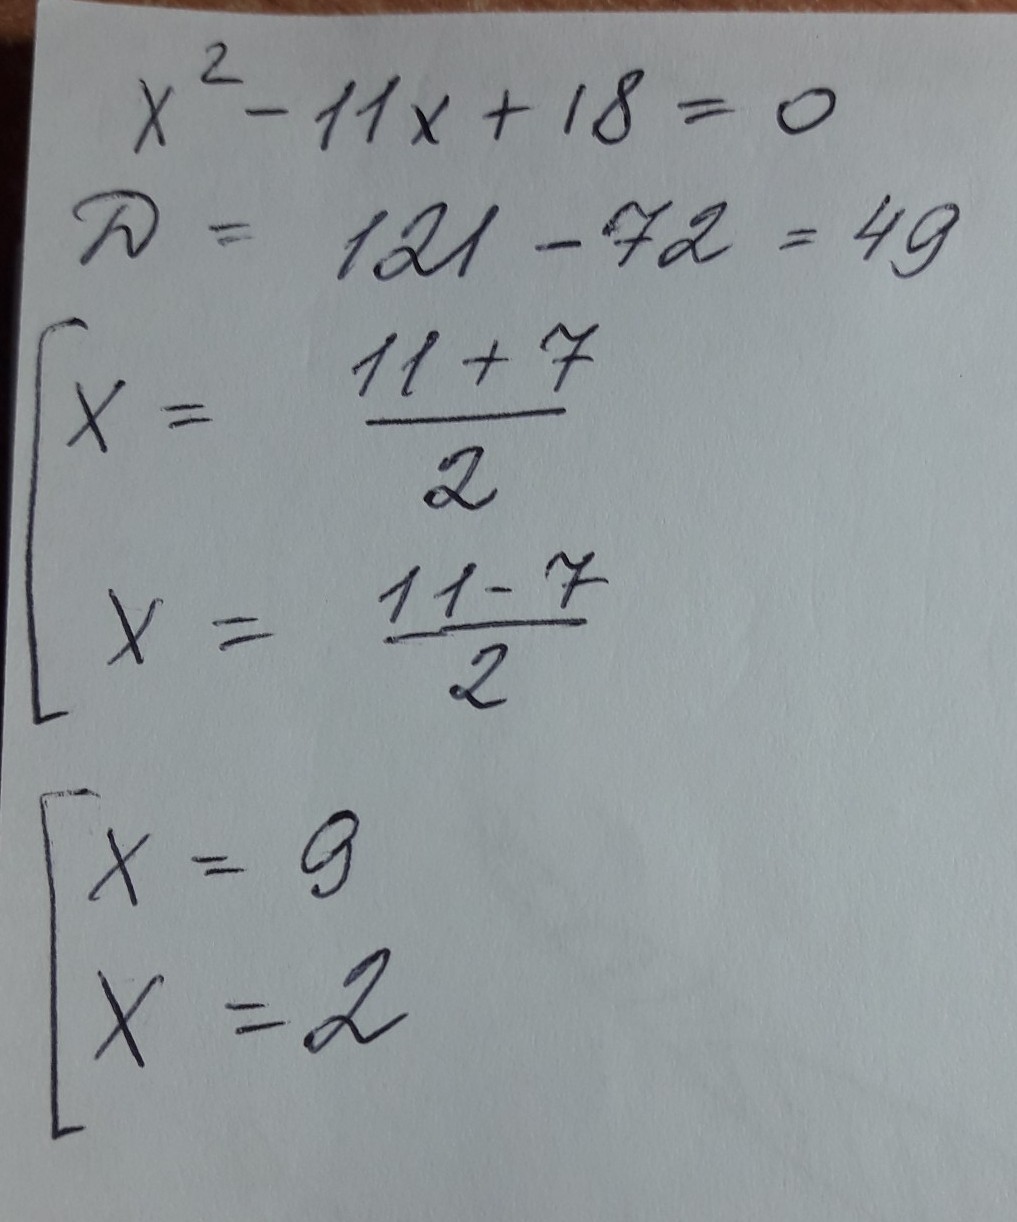 x² - 11x + 18 = 0
D = 121 - 72 = 49
x = (11 + 7)/2
x = (11 - 7)/2
x = 9
x = 2